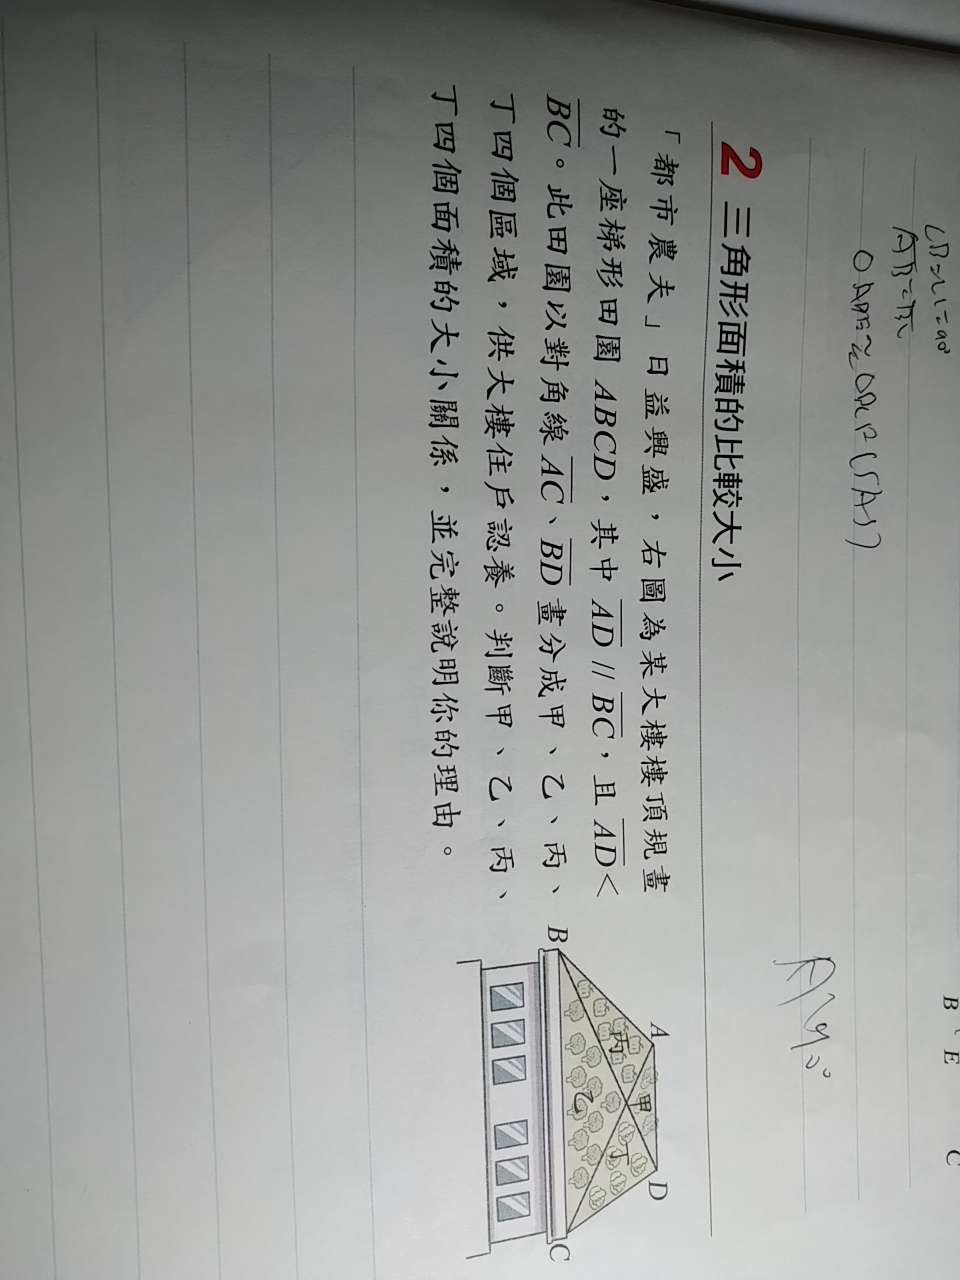 ∠B=∠C=90°
B E C
2 三角形面積的比較大小
「都市農夫」日益興盛，右圖為某大樓樓頂規畫
的一座梯形田園 ABCD，其中 AD // BC，且 AD <
BC。此田園以對角線 AC、BD 畫分成甲、乙、丙、
丁四個區域，供大樓住戶認養。判斷甲、乙、丙、
丁四個面積的大小關係，並完整說明你的理由。
A D
甲
丙 丁
乙
B C